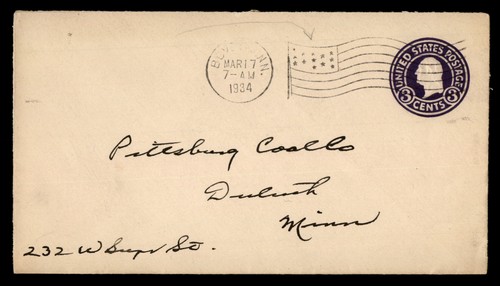 MAR 17
7-AM
1934
UNITED STATES POSTAGE
3 CENTS 3
Pittsburg Coal Co
Duluth
Minn
232 W Supr St.